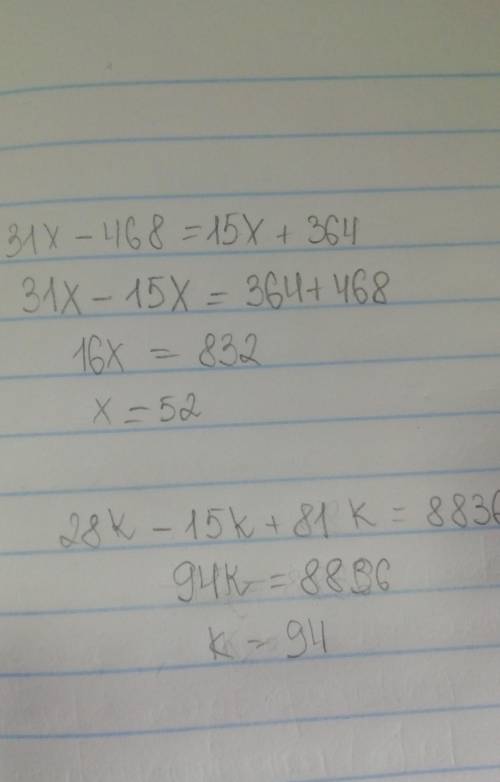 31x - 468 = 15x + 364
31x - 15x = 364 + 468
16x = 832
x = 52
28k - 15k + 81k = 8836
94k = 8836
k = 94